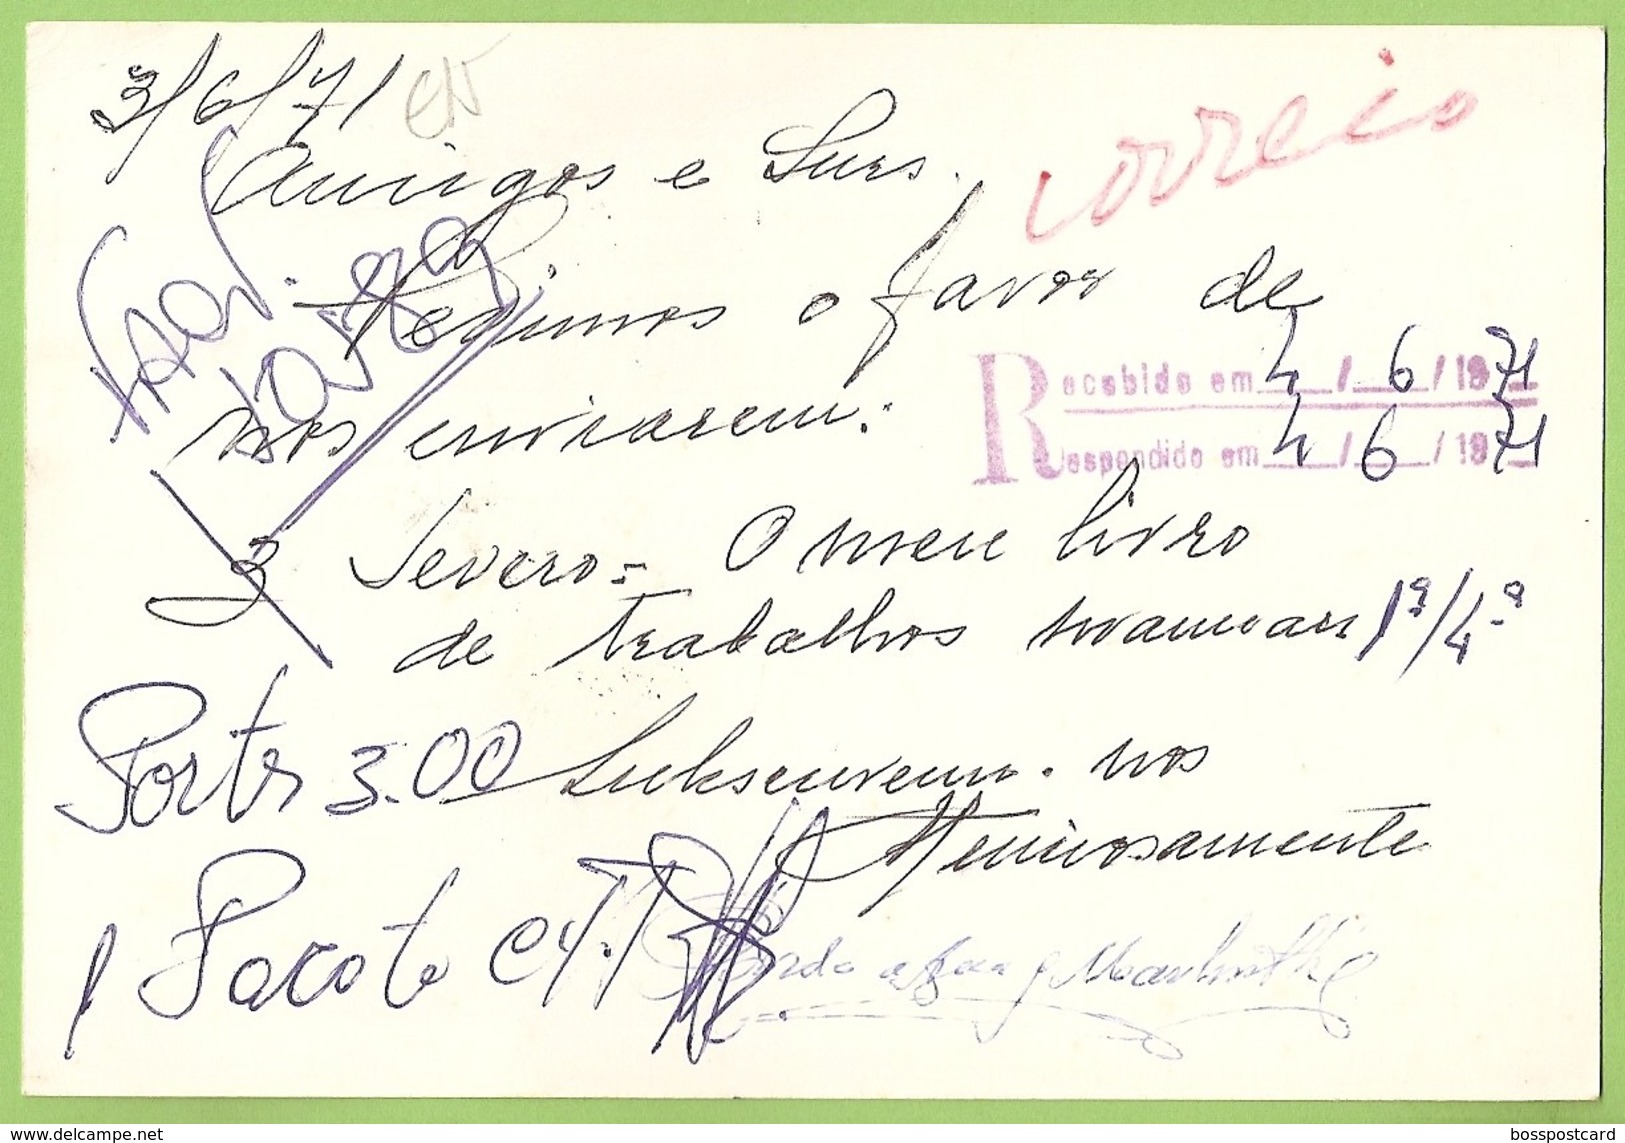 3/6/71
Correio
Amigos e Snrs.
Pedimos o favor de
nos enviarem:
Recebido em 4/6/1971
Respondido em 4/6/1971
3 Severo = O meu livro
de trabalhos manuais 1ª/4.ª
Porte 3.00
Subscrevemo-nos
Atenciosamente
1 Pacote CTT
bosspostcard.com
bosspostcard